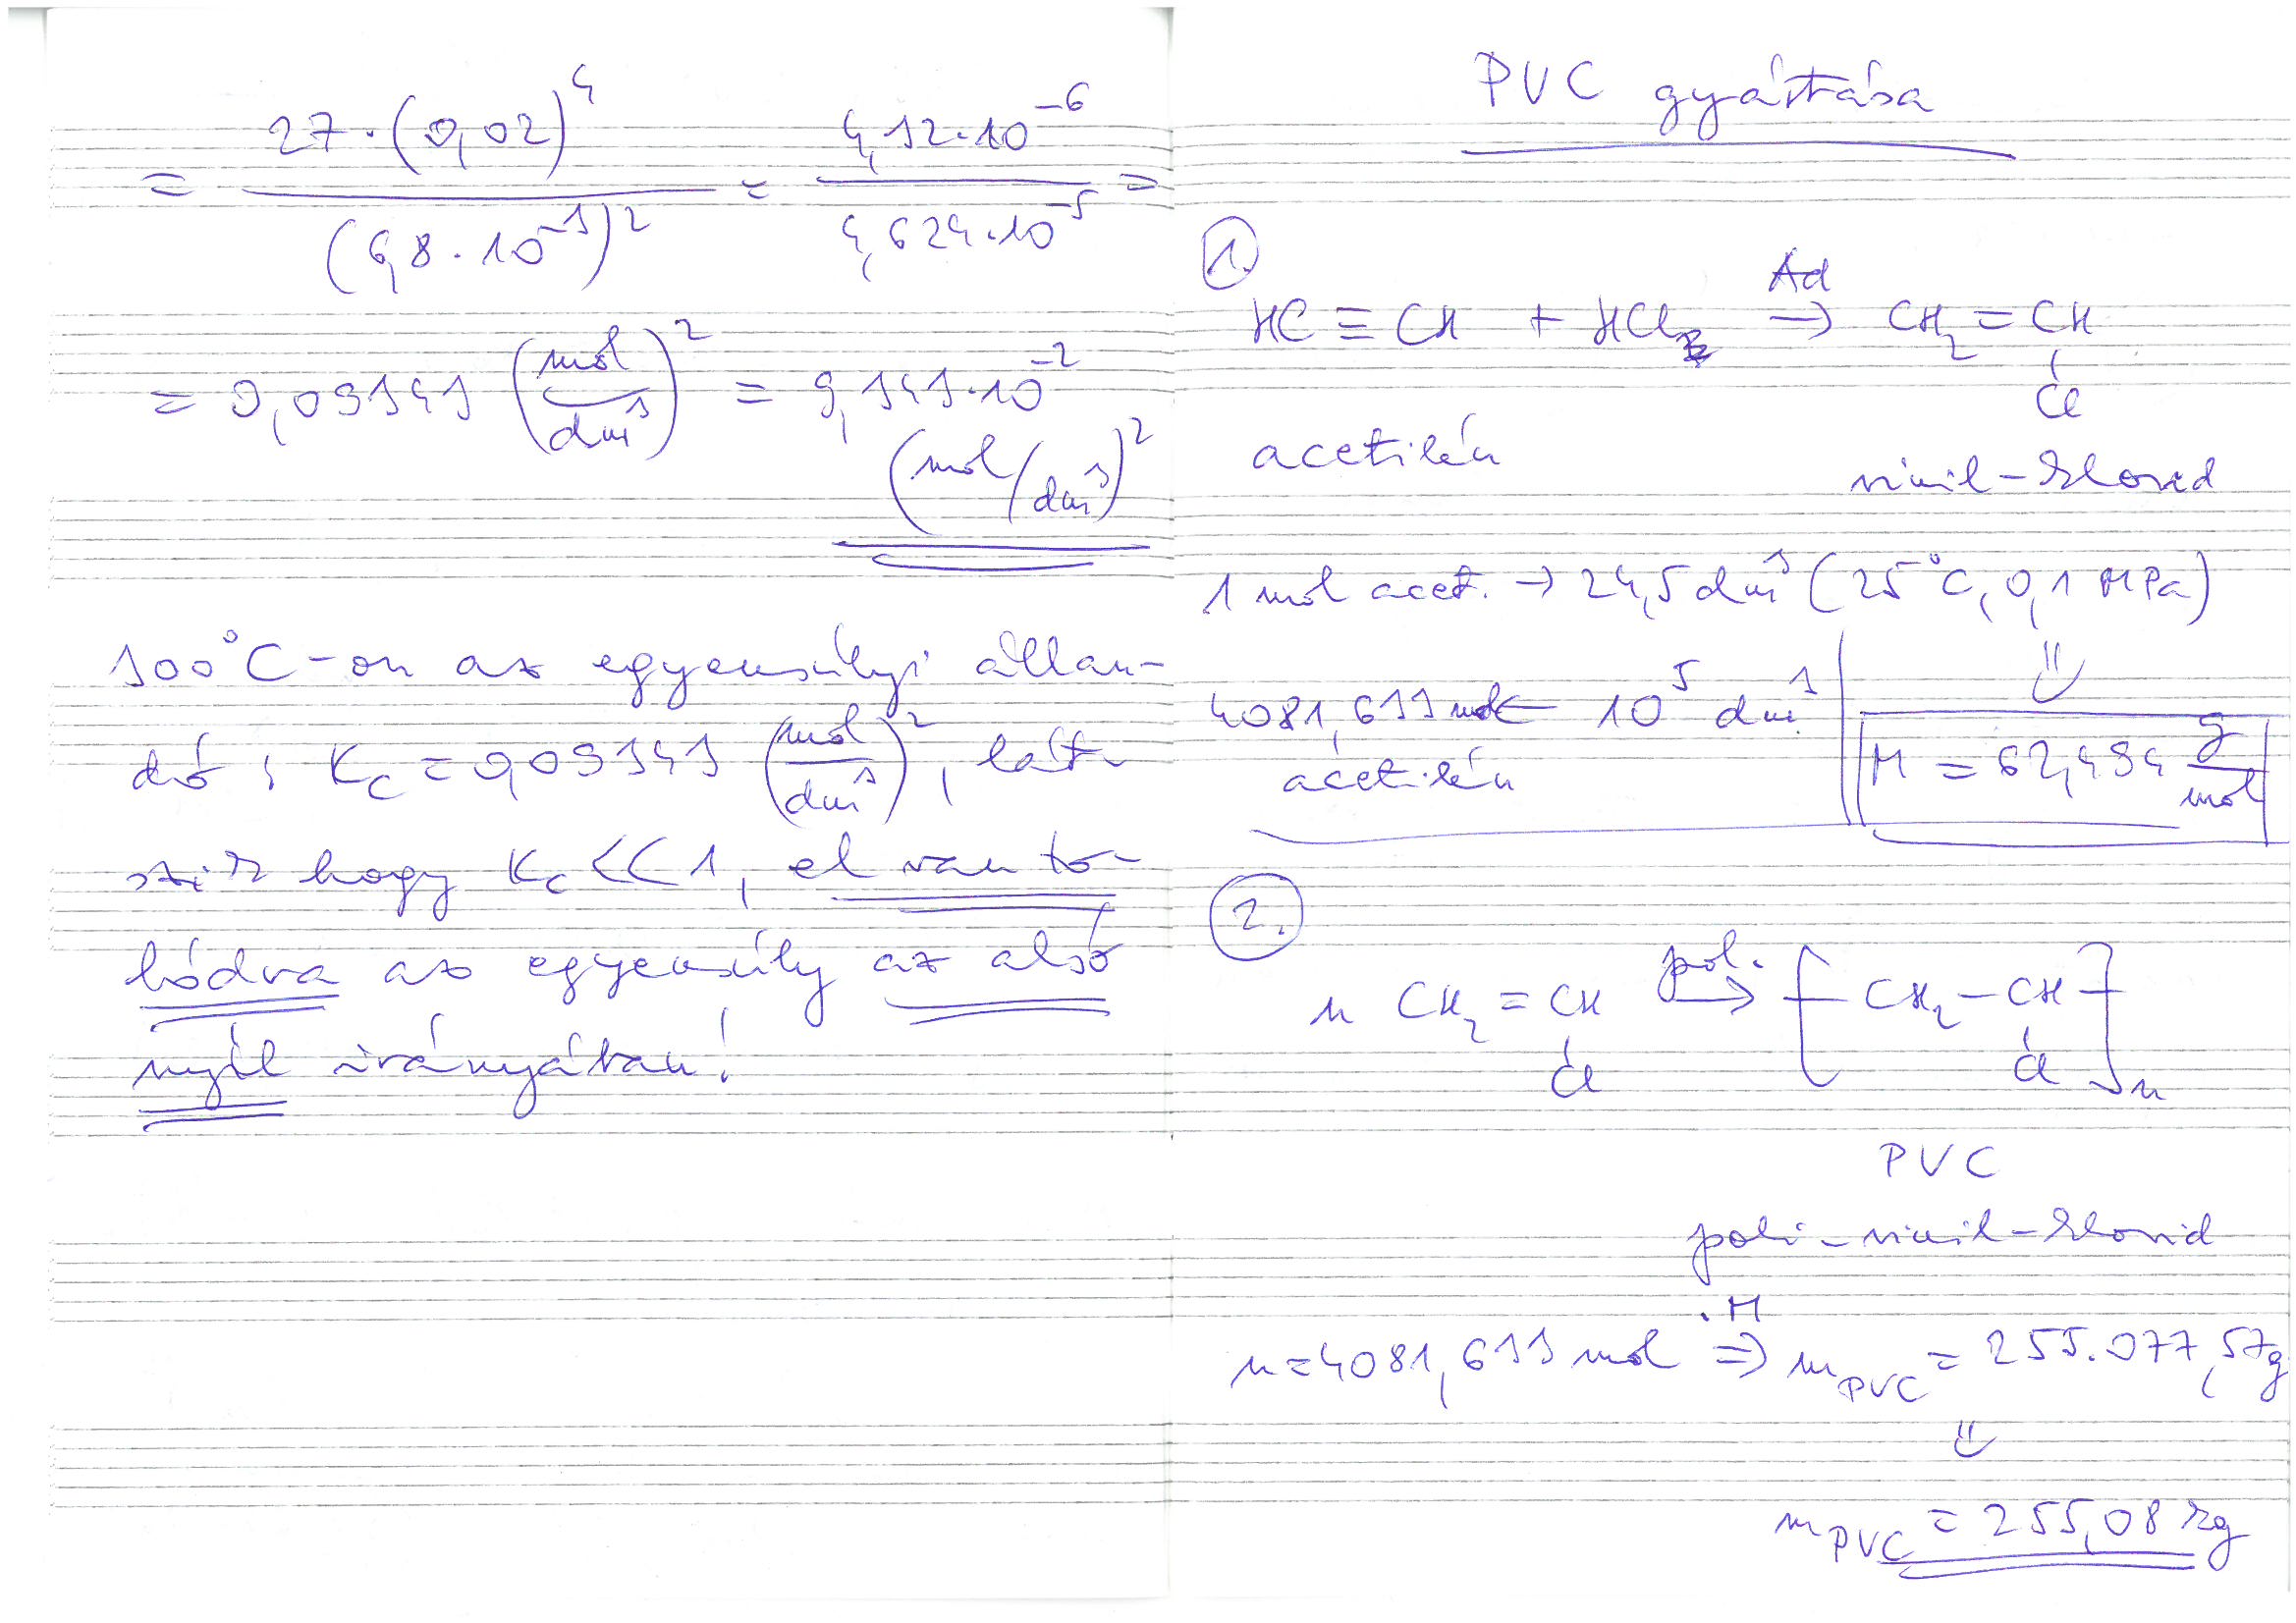 = 27·(0,02)⁴ / (6,8·10⁻³)² = 4,32·10⁻⁶ / 4,624·10⁻⁵ =
= 0,09343 (mol/dm³)² = 9,343·10⁻²
(mol/dm³)²
300°C-on az egyensúlyi állan-
dó: Kc = 0,09343 (mol/dm³)², lát-
szik hogy Kc << 1, el van to-
lódva az egyensúly az alsó
nyíl irányában!
PVC gyártása
1.
HC ≡ CH + HCl Ad → CH₂ = CH
Cl
acetilén
vinil-klorid
1 mol acet. → 24,5 dm³ (25°C, 0,1 MPa)
4081,633 mol ← 10⁵ dm³ ⇓
acetilén M = 62,494 g/mol
2.
n CH₂ = CH pol. → [CH₂ – CH]n
Cl Cl
PVC
poli-vinil-klorid
·M
n = 4081,633 mol ⇒ mPVC = 255.077,57g
⇓
mPVC = 255,08 kg